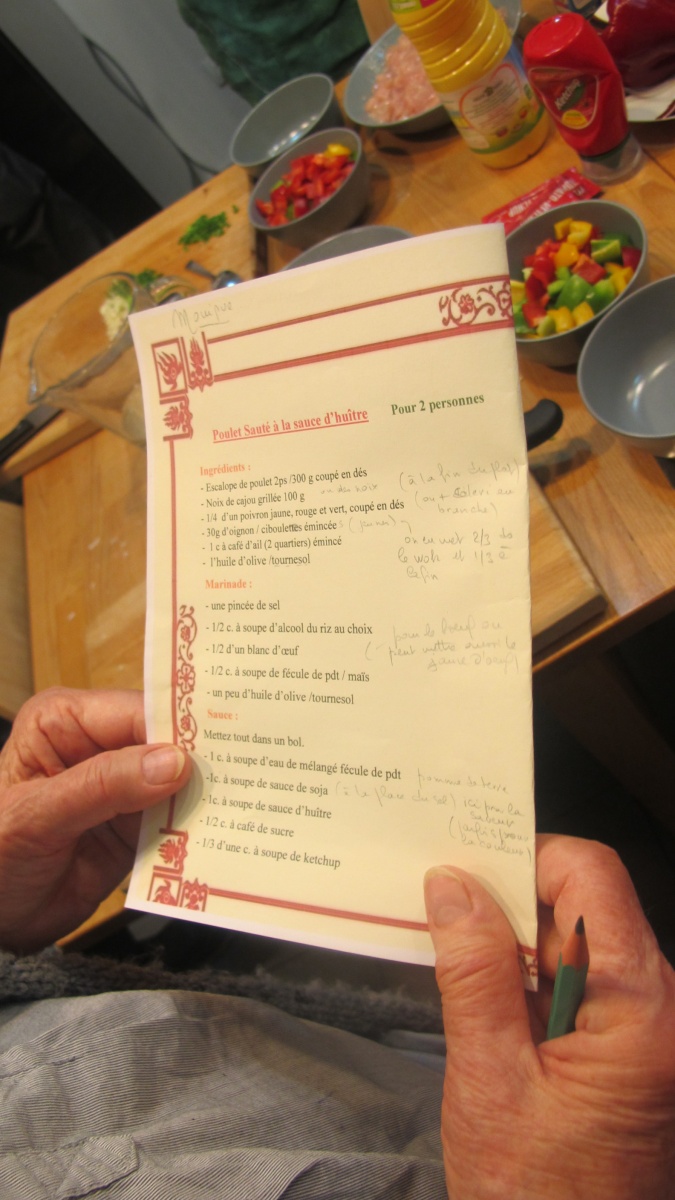 Monique
Poulet Sauté à la sauce d'huître
Pour 2 personnes
Ingrédients :
- Escalope de poulet 2ps /300 g coupé en dés
- Noix de cajou grillée 100 g (à la fin du plat)
- 1/4 d'un poivron jaune, rouge et vert, coupé en dés (ou + céleri en branche)
- 30g d'oignon / ciboulettes émincées
- 1 c à café d'ail (2 quartiers) émincé
on en met 2/3 ds
le wok et 1/3 à
la fin
- l'huile d'olive /tournesol
Marinade :
- une pincée de sel
- 1/2 c. à soupe d'alcool du riz au choix
- 1/2 d'un blanc d'œuf
pour le bœuf on
peut mettre aussi le
jaune d'œuf
- 1/2 c. à soupe de fécule de pdt / maïs
- un peu d'huile d'olive /tournesol
Sauce :
Mettez tout dans un bol.
- 1 c. à soupe d'eau de mélangé fécule de pdt pomme de terre
-1c. à soupe de sauce de soja (à la place du sel) ici pour la
saveur
(parfois pour
la couleur)
- 1c. à soupe de sauce d'huître
- 1/2 c. à café de sucre
- 1/3 d'une c. à soupe de ketchup
Ketchup